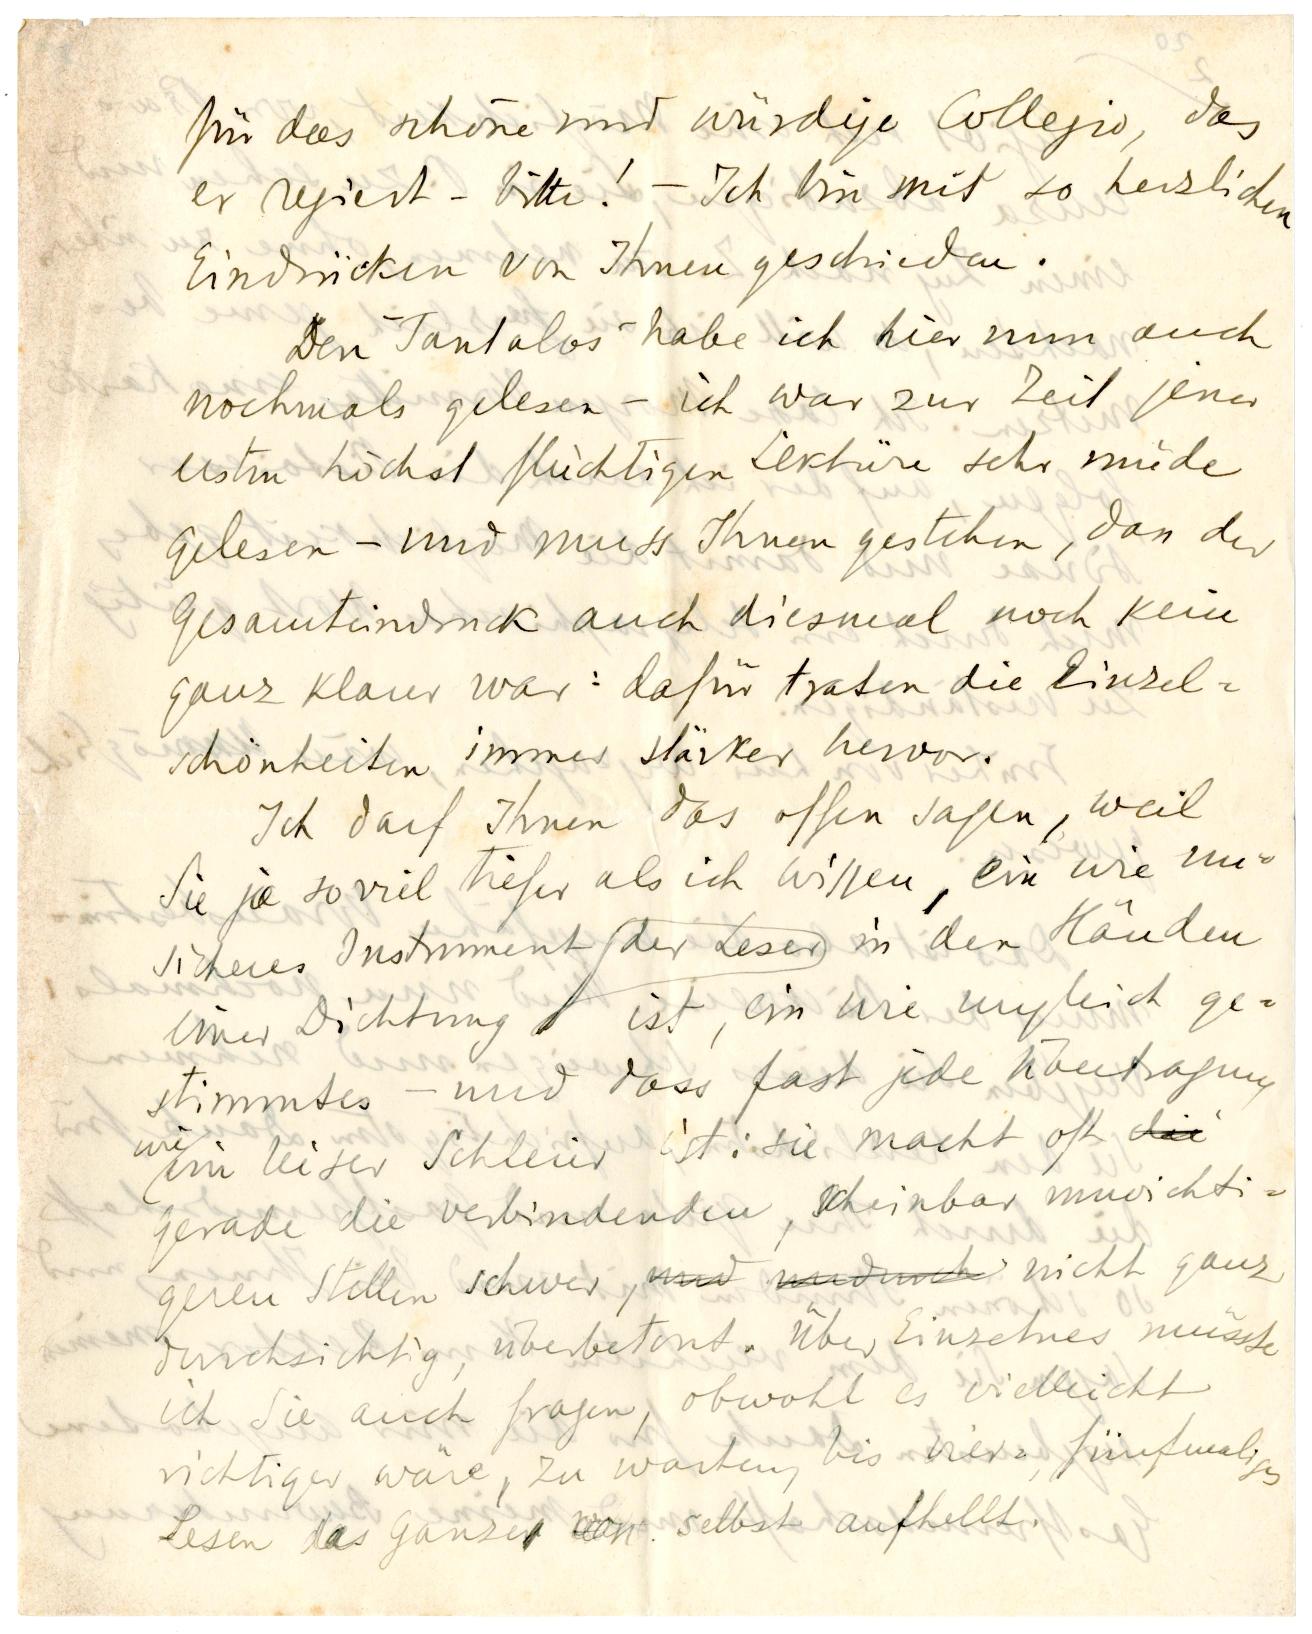 für das schöne und würdige Collegio, das
er regiert – bitte! – Ich bin mit so herzlichen
Eindrücken von Ihnen geschieden.
Den "Tantalos" habe ich hier nun auch
nochmals gelesen – ich war zur Zeit jener
ersten höchst flüchtigen Lektüre sehr müde
gelesen – und muss Ihnen gestehen, dass der
Gesamteindruck auch diesmal noch kein
ganz klarer war: dafür traten die Einzel=
schönheiten immer stärker hervor.
Ich darf Ihnen das offen sagen, weil
Sie ja soviel tiefer als ich wissen, ein wie un=
sicheres Instrument der Leser in den Händen
einer Dichtung ist, ein wie ungleich ge=
stimmtes – und dass fast jede Übertragung
wie ein leiser Schleier ist: sie macht oft die
gerade die verbindenden, scheinbar unwichti=
geren Stellen schwer, und nicht ganz
durchsichtig, überbetont. Über Einzelnes müsste
ich Sie auch fragen, obwohl es vielleicht
richtiger wäre, zu warten, bis vier=, fünfmaliges
Lesen das Ganze von selbst aufhellt.